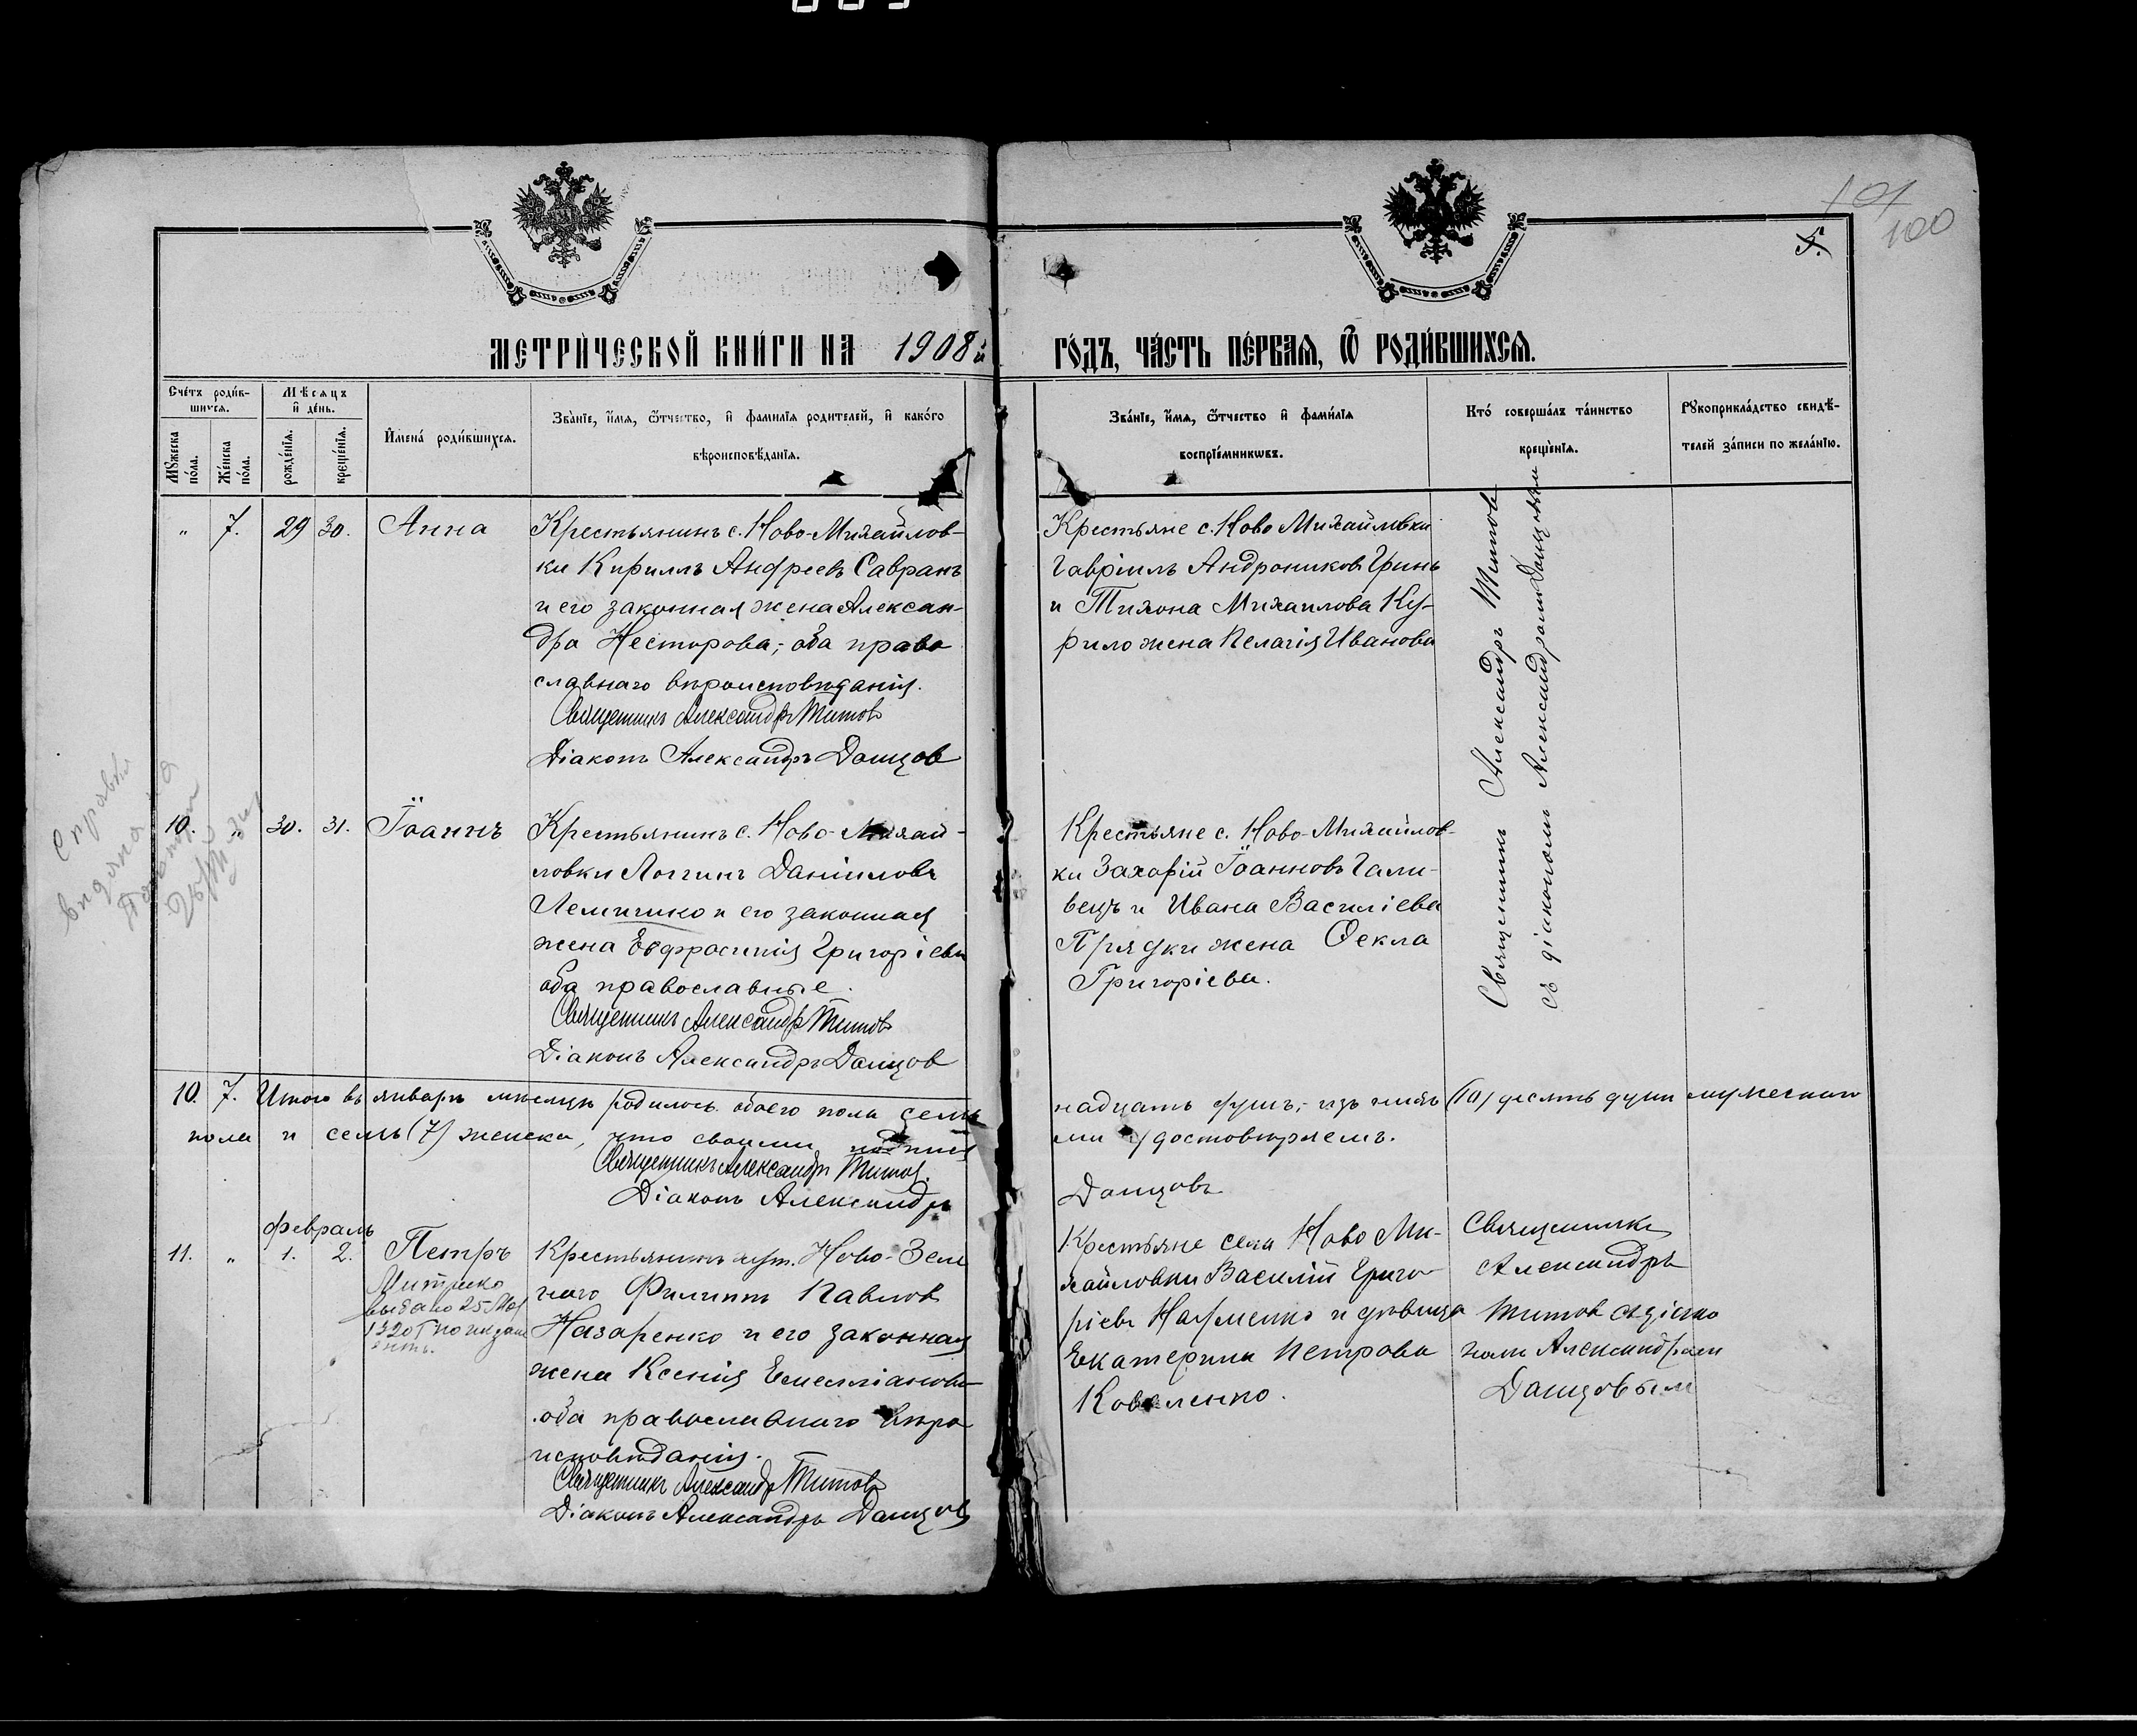 101
100
5.
МЕТРИЧЕСКОЙ КНИГИ НА 1908й ГОДЪ, ЧАСТЬ ПЕРВАЯ, Ѿ РОДИВШИХСЯ.
Счетъ родив-
шихся.
Мужеска
пола.
Женска
пола.
Мѣсяцъ
и день.
рожденія.
крещенія.
Имена родившихся.
Званіе, имя, ѿтчество, и фамилія родителей, и какого
вѣроисповѣданія.
Званіе, имя, ѿтчество и фамилія
воспріемниковъ.
Кто совершалъ таинство
крещенія.
Рукоприкладство свидѣ-
телей записи по желанію.
" 7. 29 30. Анна
Крестьянинъ с. Ново-Михайлов-
ки Кириллъ Андреевъ Савранъ
и его законная жена Алексан-
дра Несторова; оба право
славнаго вѣроисповѣданія.
Священникъ Александръ Титовъ
Діаконъ Александръ Данцов
Крестьяне с. Ново Михайловки
Гавріилъ Андрониковъ Гринь
и Тихона Михаилова Ку-
рило жена Пелагія Иванова
Священникъ Александръ Титовъ
съ діакономъ Александромъ Данцовымъ
Справка
выдана
10. " 30. 31. Іоаннъ
Крестьянинъ с. Ново-Михай-
ловки Логгинъ Даніиловъ
Лемишко и его законная
жена Евфросинія Григоріева
оба православные.
Священникъ Александръ Титовъ
Діаконъ Александръ Данцов
Крестьяне с. Ново-Михайлов-
ки Захарій Іоанновъ Гали-
вецъ и Ивана Василіева
Прядки жена Ѳекла
Григоріева.
10. 7. Итого въ январѣ мѣсяцѣ родилось обоего пола семь надцать душъ; изъ нихъ (10) десять душъ мужескаго
пола и семь (7) женска, что своими подпися ми удостовѣряемъ.
Священникъ Александръ Титов.
Діаконъ Александръ Данцовъ
февраль
11. " 1. 2. Петръ
выдано 25
Крестьянинъ хут. Ново-Зеле
наго Филиппъ Павлов
Назаренко и его законная
жена Ксенія Емелліанова
оба православнаго вѣро
исповѣданія.
Священникъ Александръ Титовъ
Діаконъ Александръ Данцов
Крестьяне села Ново Ми-
хайловки Василій Григо
ріевъ Науменко и дѣвица
Екатерина Петрова
Коваленко.
Священникъ
Александръ
Титов съ діако
номъ Александромъ
Данцовымъ